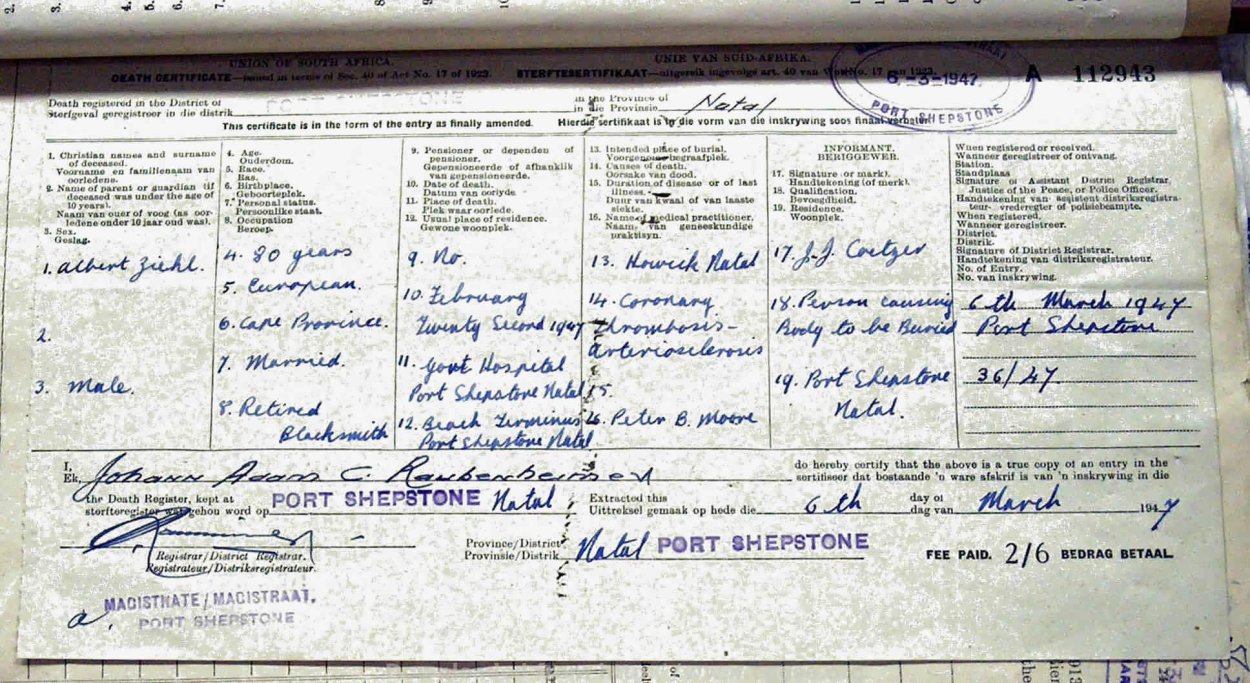 UNION OF SOUTH AFRICA.
UNIE VAN SUID-AFRIKA.
DEATH CERTIFICATE—issued in terms of Sec. 40 of Act No. 17 of 1923.
STERFTESERTIFIKAAT—uitgereik ingevolge art. 40 van Wet No. 17 van 1923.
6-3-1947
PORT SHEPSTONE
A 112943
Death registered in the District of
Sterfgeval geregistreer in die distrik
in the Province of
in die Provinsie Natal
This certificate is in the form of the entry as finally amended.
Hierdie sertifikaat is in die vorm van die inskrywing soos finaal verbeter.
1. Christian names and surname
of deceased.
Voorname en familienaam van
oorledene.
2. Name of parent or guardian (if
deceased was under the age of
10 years).
Naam van ouer of voog (as oor-
ledene onder 10 jaar oud was).
3. Sex.
Geslag.
1. Albert Ziehl.
2.
3. Male.
4. Age.
Ouderdom.
5. Race.
Ras.
6. Birthplace.
Geboorteplek.
7. Personal status.
Persoonlike staat.
8. Occupation
Beroep.
4. 80 years
5. European.
6. Cape Province.
7. Married.
8. Retired
Blacksmith
9. Pensioner or dependent of
pensioner.
Gepensioneerde of afhanklik
van gepensioneerde.
10. Date of death.
Datum van oorlyde.
11. Place of death.
Plek waar oorlede.
12. Usual place of residence.
Gewone woonplek.
9. No.
10. February
Twenty Second 1947
11. Govt Hospital
Port Shepstone Natal
12. Beach Terminus
Port Shepstone Natal
13. Intended place of burial.
Voorgenome begraafplek.
14. Causes of death.
Oorsake van dood.
15. Duration of disease or of last
illness.
Duur van kwaal of van laaste
siekte.
16. Name of medical practitioner.
Naam van geneeskundige
praktisyn.
13. Howick Natal
14. Coronary
Thrombosis-
Arteriosclerosis
15.
16. Peter B. Moore
INFORMANT.
BERIGGEWER.
17. Signature (or mark).
Handtekening (of merk).
18. Qualification.
Bevoegdheid.
19. Residence.
Woonplek.
17. J.J. Coetzer
18. Person causing
Body to be Buried
19. Port Shepstone
Natal.
When registered or received.
Wanneer geregistreer of ontvang.
Station.
Standplaas
Signature of Assistant District Registrar,
Justice of the Peace, or Police Officer.
Handtekening van assistent distriksregistra-
teur, vrederegter of polisiebeampte.
When registered.
Wanneer geregistreer.
District.
Distrik.
Signature of District Registrar.
Handtekening van distriksregistrateur.
No. of Entry.
No. van inskrywing.
6th March 1947
Port Shepstone
36/47
I,
Ek, Johann Adam C. Raubenheimer
do hereby certify that the above is a true copy of an entry in the
sertifiseer dat bostaande 'n ware afskrif is van 'n inskrywing in die
the Death Register, kept at
sterfteregister wat gehou word op PORT SHEPSTONE Natal
Extracted this
Uittreksel gemaak op hede die 6th
day of
dag van March 1947
Registrar/District Registrar.
Registrateur/Distriksregistrateur.
Province/District
Provinsie/Distrik Natal PORT SHEPSTONE
FEE PAID. 2/6 BEDRAG BETAAL.
MAGISTRATE/MAGISTRAAT.
PORT SHEPSTONE